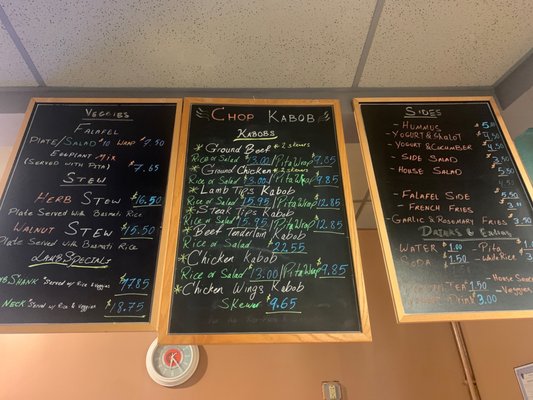 VEGGIES
FALAFEL
PLATE/SALAD 10 WRAP $7.50
EGGPLANT MIX
(SERVED WITH PITA) $7.65
STEW
HERB STEW $16.50
PLATE SERVED WITH BASMATI RICE
WALNUT STEW $15.50
PLATE SERVED WITH BASMATI RICE
LAMB SPECIALS
SHANK SERVED W/ RICE & VEGGIES
NECK SERVED W/ RICE & VEGGIES $18.75
CHOP KABOB
KABOBS
* GROUND BEEF * 2 SKEWERS
RICE OR SALAD $13.00 / PITA WRAP 9.85
* GROUND CHICKEN * 2 SKEWERS
RICE OR SALAD $13.00 / PITA WRAP 9.85
* LAMB TIPS KABOB
RICE OR SALAD 15.95 / PITA WRAP 12.85
* STEAK TIPS KABOB
RICE OR SALAD 15.95 / PITA WRAP 12.85
* BEEF TENDERLOIN KABOB
RICE OR SALAD 22.55
* CHICKEN KABOB
RICE OR SALAD $13.00 / PITA WRAP $9.85
* CHICKEN WINGS KABOB
SKEWER $9.65
SIDES
- HUMMUS
- YOGURT & SHALOT
- YOGURT & CUCUMBER
- SIDE SALAD
- HOUSE SALAD
- FALAFEL SIDE
- FRENCH FRIES
- GARLIC & ROSEMARY FRIES
DRINKS & EXTRAS
WATER $1.00 - PITA
SODA $1.50 - WHITE RICE
TEA 1.50
DRINK $3.00